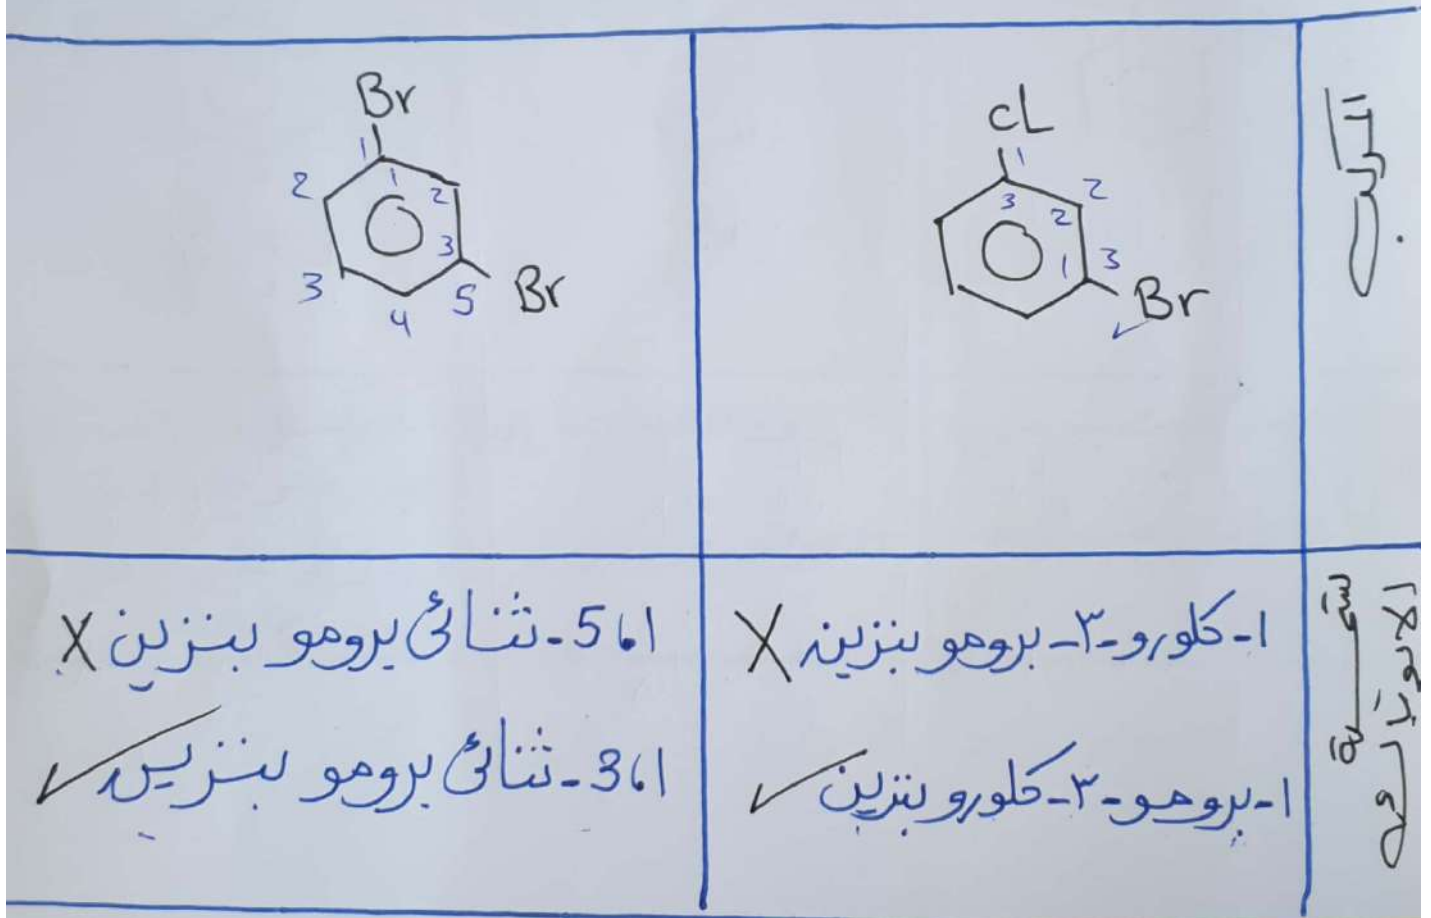 المركب
cL
1
3
2
2
1
3
Br
Br
1
1
2
2
3
3
4
5
Br
تسمية
الايوباك
١-كلورو-٣-برومو بنزين X
١-برومو-٣-كلورو بنزين ✓
5،1-ثنائى برومو بنزين X
3،1-ثنائى برومو بنزين ✓